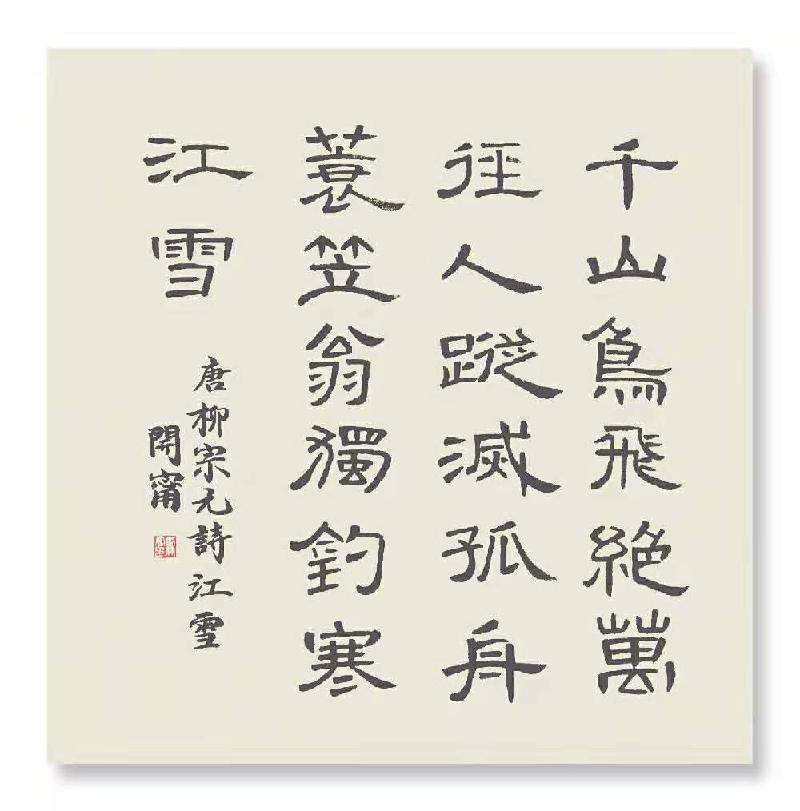 千山鳥飛絕萬
徑人蹤滅孤舟
蓑笠翁獨釣寒
江雪
唐柳宗元詩江雪
開甯